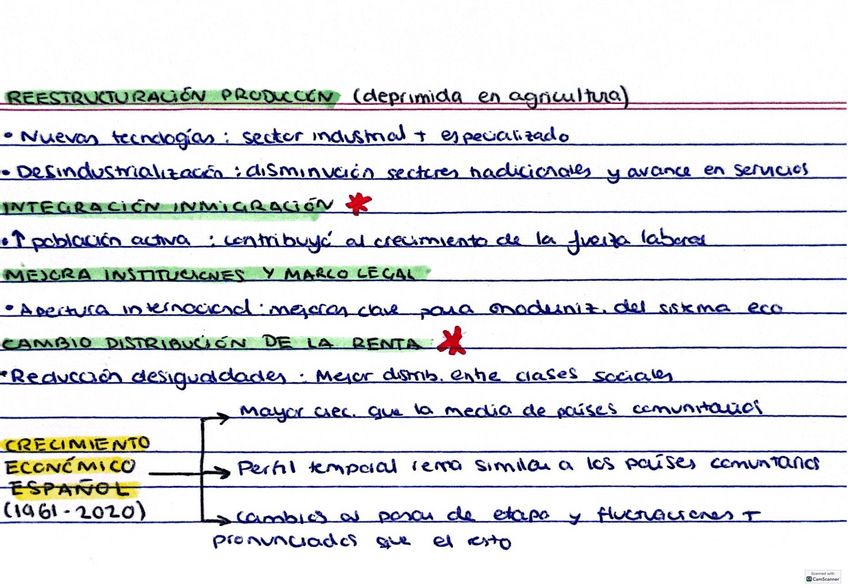 REESTRUCTURACIÓN PRODUCCIÓN (deprimida en agricultura)
• Nuevas tecnologías : sector industrial + especializado
• Desindustrialización : disminución sectores tradicionales y avance en servicios
INTEGRACIÓN INMIGRACIÓN *
• ↑ población activa : contribuyó al crecimiento de la fuerza laboral
MEJORA INSTITUCIONES Y MARCO LEGAL
• Apertura internacional : mejoras clave para moderniz. del sistema eco
CAMBIO DISTRIBUCIÓN DE LA RENTA *
• Reducción desigualdades : Mejor distrib. entre clases sociales
Mayor crec. que la media de países comunitarios
CRECIMIENTO ECONÓMICO ESPAÑOL (1961-2020)
Perfil temporal renta similar a los países comunitarios
Cambios al pasar de etapa y fluctuaciones +
pronunciadas que el resto
Scanned with
CamScanner